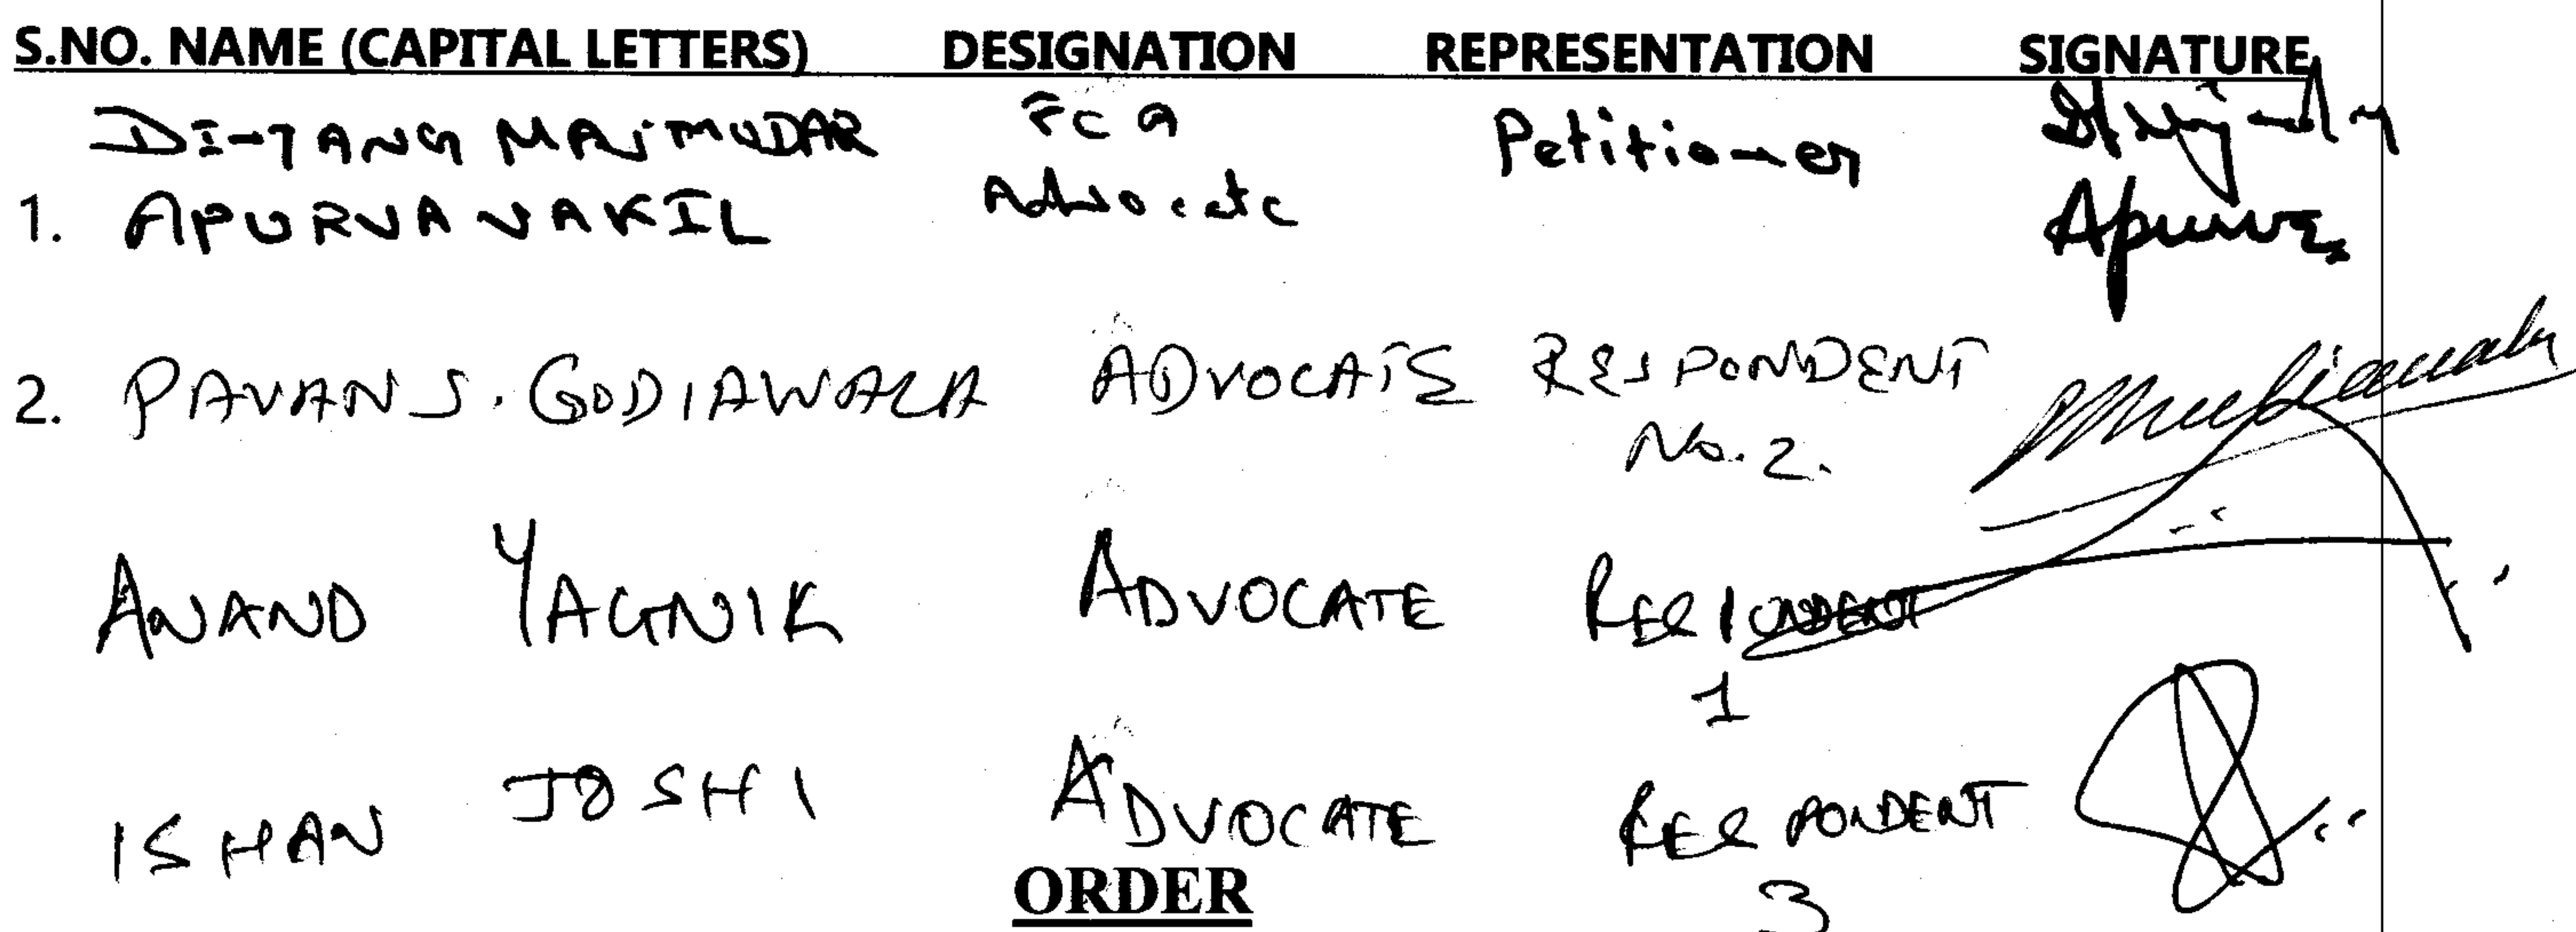 S.NO. NAME (CAPITAL LETTERS) DESIGNATION REPRESENTATION SIGNATURE
MAJMUDAR FCA Petitioner
1. APURVA VAKIL Advocate Apurva
2. PAVAN S. GODIAWALA ADVOCATE RESPONDENT
No. 2.
ANAND YAGNIK ADVOCATE RESPONDENT
1
ISHAN JOSHI ADVOCATE RESPONDENT
3
ORDER